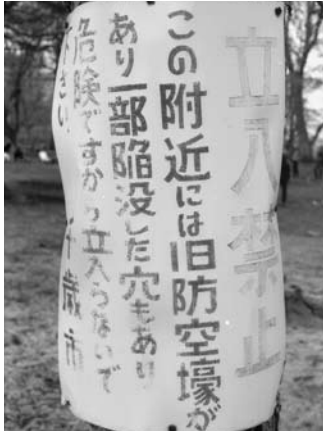 立入禁止
この附近には旧防空壕が
あり一部陥没した穴もあり
危険ですから立入らないで
下さい 千歳市